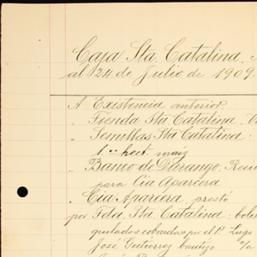 Caja Sta Catalina.
al 24 de Julio de 1909.
A Existencia anterior
" Tienda Sta Catalina.
" Semillas Sta Catalina.
1 " hect. maiz
" Banco de Durango.
para Cia Aparcera
" Cia Aparcera prestó
por Fdu. Sta Catalina
quitados cobrados por el Sr Lugo
José Gutierrez